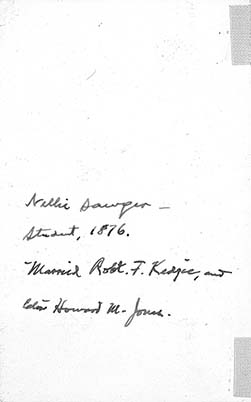 Nellie Sawyer —
Student, 1876.
Married Robt. F. Kedzie, and
Howard M. Jones.